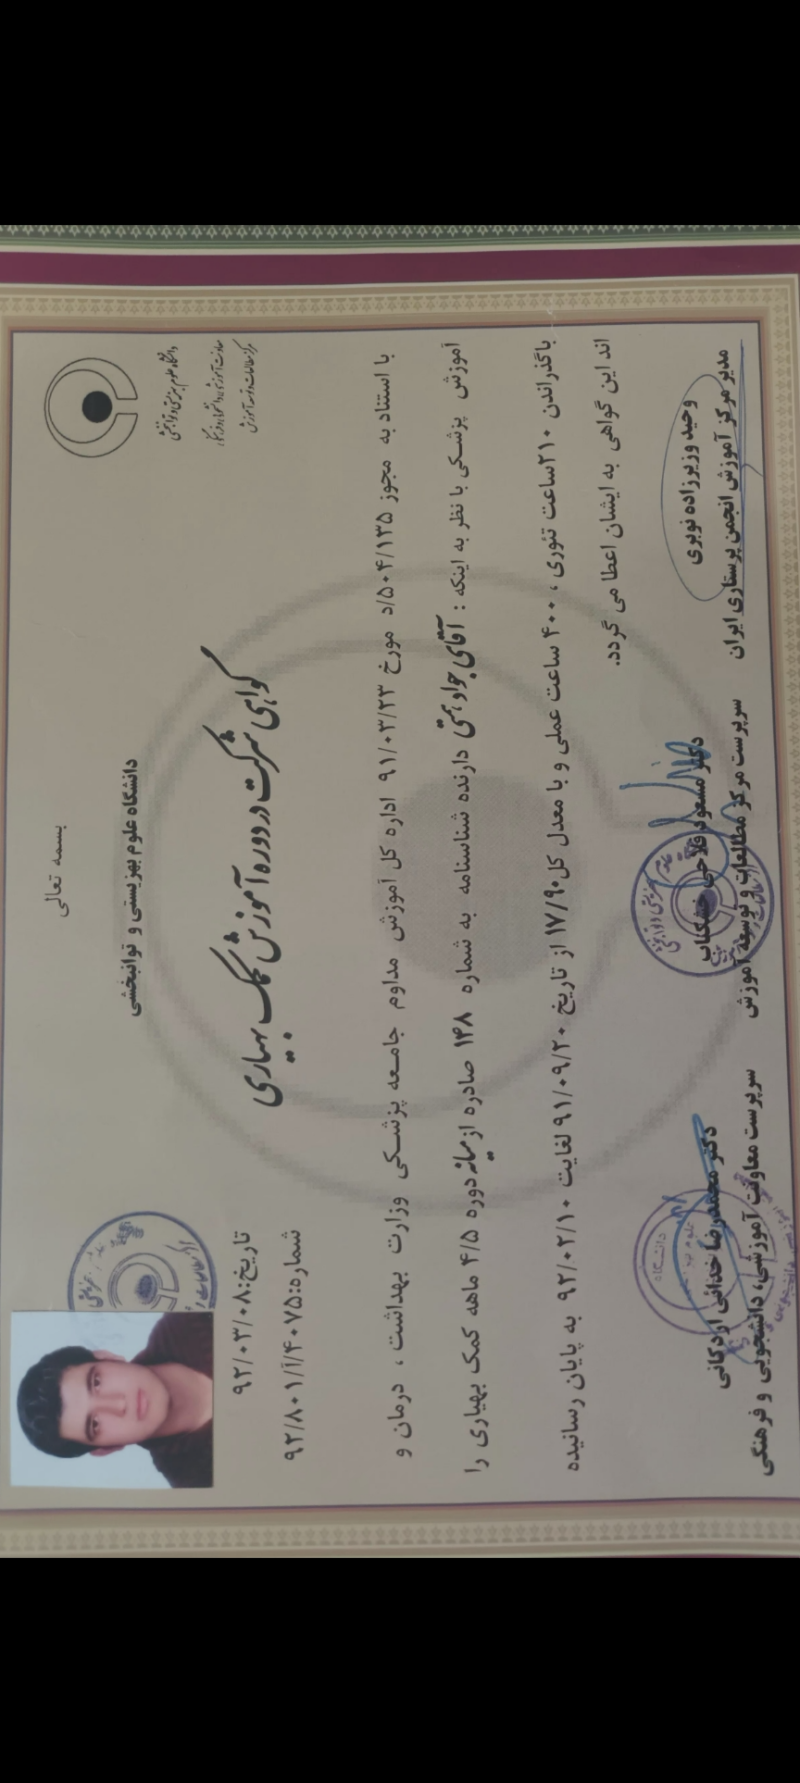 بسمه تعالی
دانشگاه علوم بهزیستی و توانبخشی
دانشگاه علوم بهزیستی و توانبخشی
معاونت آموزشی، دانشجویی و فرهنگی
مرکز مطالعات و توسعه آموزش
گواهی شرکت در دوره آموزش کمک بهیاری
تاریخ:۹۲/۰۳/۰۸
شماره:۹۲/۸۰۱/آ/۴۰۷۵
با استناد به مجوز ۵۰۴/۱۳۵/د مورخ ۹۱/۰۳/۲۳ اداره کل آموزش مداوم جامعه پزشکی وزارت بهداشت ، درمان و
آموزش پزشکی با نظر به اینکه : آقای جواد همتی دارنده شناسنامه به شماره ۱۴۸ صادره از میانه دوره ۴/۵ ماهه کمک بهیاری را
باگذراندن ۲۱۰ساعت تئوری ، ۴۰۰ ساعت عملی و با معدل کل۱۷/۹۰ از تاریخ ۹۱/۰۹/۲۰ لغایت ۹۲/۰۲/۱۰ به پایان رسانیده
اند این گواهی به ایشان اعطا می گردد.
وحید وزیرزاده نوبری
مدیر مرکز آموزش انجمن پرستاری ایران
دکتر مسعود فلاحی خشکناب
سرپرست مرکز مطالعات و توسعه آموزش
دکتر محمدرضا خدائی اردکانی
سرپرست معاونت آموزشی، دانشجویی و فرهنگی